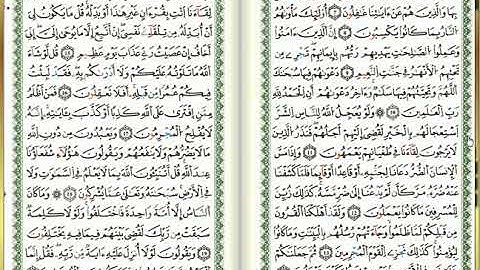 بِهَا وَالَّذِينَ هُمْ عَنْ ءَايَٰتِنَا غَٰفِلُونَ ٧ أُوْلَٰٓئِكَ مَأْوَىٰهُمُ
النَّارُ بِمَا كَانُوا۟ يَكْسِبُونَ ٨ إِنَّ الَّذِينَ ءَامَنُوا۟
وَعَمِلُوا۟ الصَّٰلِحَٰتِ يَهْدِيهِمْ رَبُّهُم بِإِيمَٰنِهِمْ تَجْرِى مِن
تَحْتِهِمُ الْأَنْهَٰرُ فِى جَنَّٰتِ النَّعِيمِ ٩ دَعْوَىٰهُمْ فِيهَا سُبْحَٰنَكَ
اللَّهُمَّ وَتَحِيَّتُهُمْ فِيهَا سَلَٰمٌ وَءَاخِرُ دَعْوَىٰهُمْ أَنِ الْحَمْدُ لِلَّهِ
رَبِّ الْعَٰلَمِينَ ١٠ ۞ وَلَوْ يُعَجِّلُ اللَّهُ لِلنَّاسِ الشَّرَّ
اسْتِعْجَالَهُم بِالْخَيْرِ لَقُضِىَ إِلَيْهِمْ أَجَلُهُمْ فَنَذَرُ الَّذِينَ
لَا يَرْجُونَ لِقَآءَنَا فِى طُغْيَٰنِهِمْ يَعْمَهُونَ ١١ وَإِذَا مَسَّ
الْإِنسَٰنَ الضُّرُّ دَعَانَا لِجَنۢبِهِۦٓ أَوْ قَاعِدًا أَوْ قَآئِمًا فَلَمَّا كَشَفْنَا
عَنْهُ ضُرَّهُۥ مَرَّ كَأَن لَّمْ يَدْعُنَآ إِلَىٰ ضُرٍّ مَّسَّهُۥ كَذَٰلِكَ زُيِّنَ
لِلْمُسْرِفِينَ مَا كَانُوا۟ يَعْمَلُونَ ١٢ وَلَقَدْ أَهْلَكْنَا الْقُرُونَ
مِن قَبْلِكُمْ لَمَّا ظَلَمُوا۟ وَجَآءَتْهُمْ رُسُلُهُم بِالْبَيِّنَٰتِ وَمَا كَانُوا۟
لِيُؤْمِنُوا۟ كَذَٰلِكَ نَجْزِى الْقَوْمَ الْمُجْرِمِينَ ١٣ ثُمَّ جَعَلْنَٰكُمْ
لِقَآءَنَا ائْتِ بِقُرْءَانٍ غَيْرِ هَٰذَآ أَوْ بَدِّلْهُ قُلْ مَا يَكُونُ لِىٓ
أَنْ أُبَدِّلَهُۥ مِن تِلْقَآئِ نَفْسِىٓ إِنْ أَتَّبِعُ إِلَّا مَا يُوحَىٰٓ إِلَىَّ إِنِّىٓ
أَخَافُ إِنْ عَصَيْتُ رَبِّى عَذَابَ يَوْمٍ عَظِيمٍ ١٥ قُل لَّوْ شَآءَ
اللَّهُ مَا تَلَوْتُهُۥ عَلَيْكُمْ وَلَآ أَدْرَىٰكُم بِهِۦ فَقَدْ لَبِثْتُ
فِيكُمْ عُمُرًا مِّن قَبْلِهِۦٓ أَفَلَا تَعْقِلُونَ ١٦ فَمَنْ أَظْلَمُ
مِمَّنِ افْتَرَىٰ عَلَى اللَّهِ كَذِبًا أَوْ كَذَّبَ بِـَٔايَٰتِهِۦٓ إِنَّهُۥ
لَا يُفْلِحُ الْمُجْرِمُونَ ١٧ وَيَعْبُدُونَ مِن دُونِ اللَّهِ
مَا لَا يَضُرُّهُمْ وَلَا يَنفَعُهُمْ وَيَقُولُونَ هَٰٓؤُلَآءِ شُفَعَٰٓؤُنَا
عِندَ اللَّهِ قُلْ أَتُنَبِّـُٔونَ اللَّهَ بِمَا لَا يَعْلَمُ فِى السَّمَٰوَٰتِ وَلَا
فِى الْأَرْضِ سُبْحَٰنَهُۥ وَتَعَٰلَىٰ عَمَّا يُشْرِكُونَ ١٨ وَمَا كَانَ
النَّاسُ إِلَّآ أُمَّةً وَٰحِدَةً فَاخْتَلَفُوا۟ وَلَوْلَا كَلِمَةٌ
سَبَقَتْ مِن رَّبِّكَ لَقُضِىَ بَيْنَهُمْ فِيمَا فِيهِ يَخْتَلِفُونَ
١٩ وَيَقُولُونَ لَوْلَآ أُنزِلَ عَلَيْهِ ءَايَةٌ مِّن رَّبِّهِۦ فَقُلْ إِنَّمَا